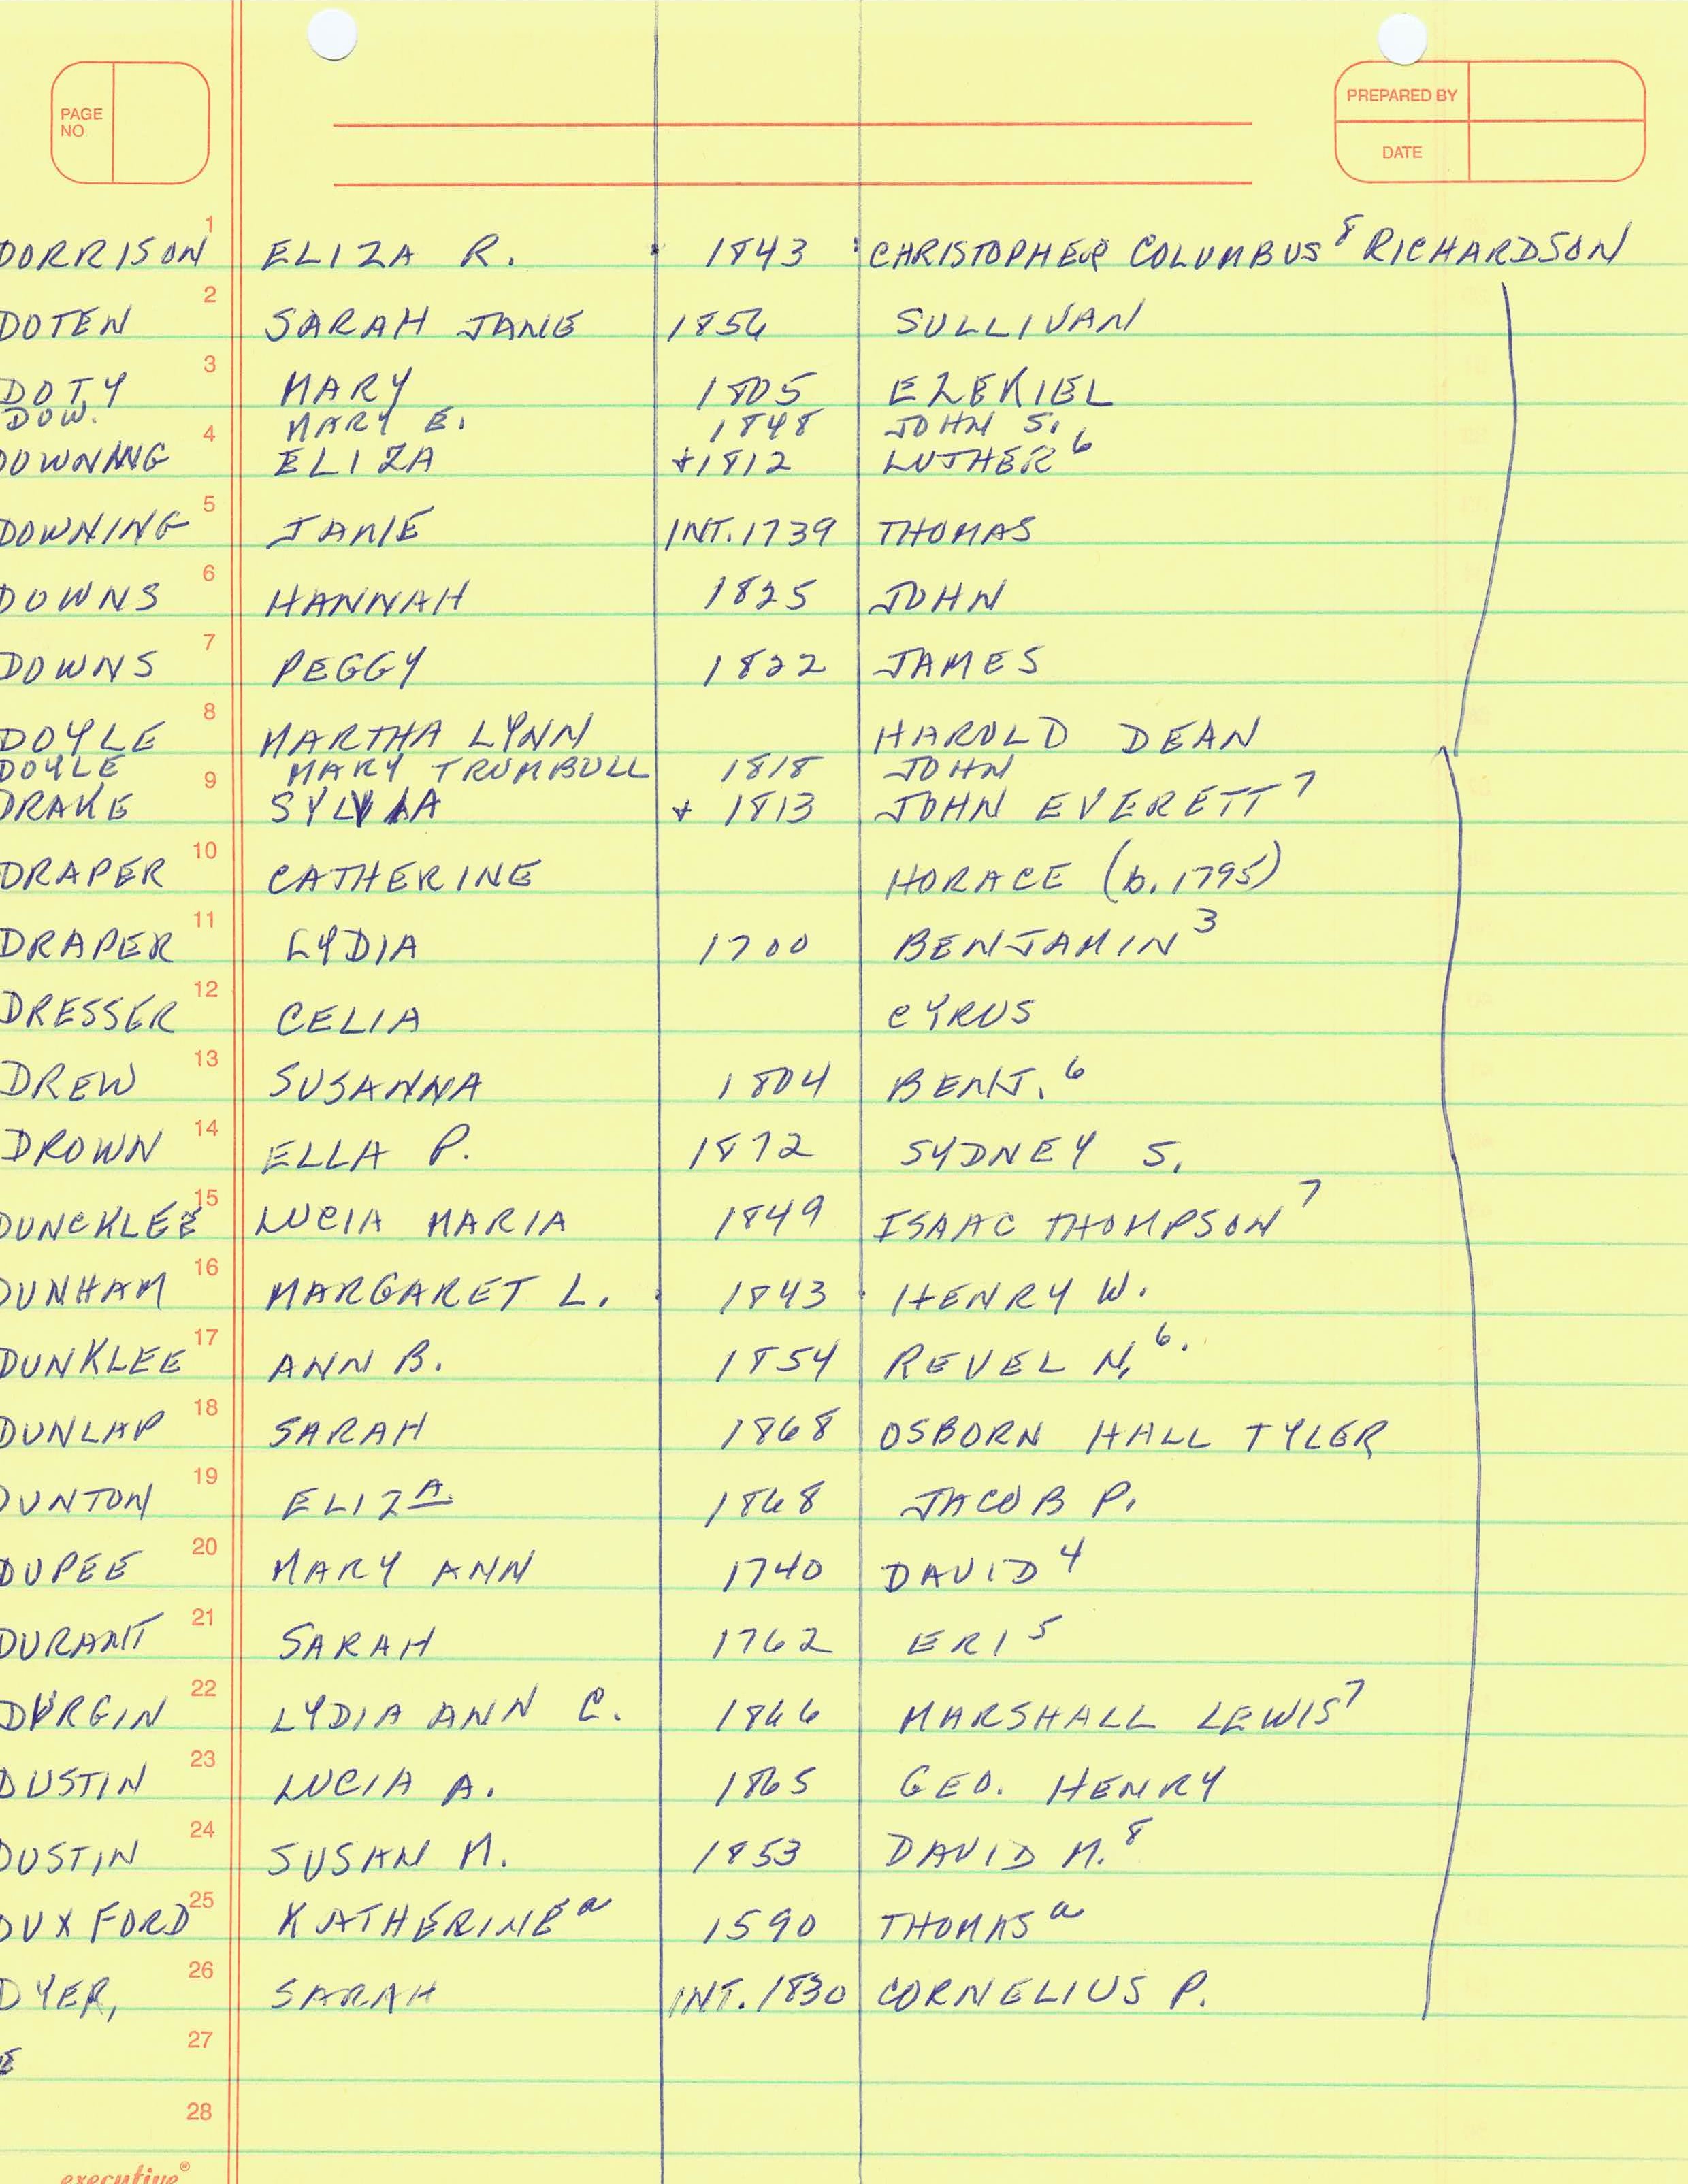 PAGE NO
PREPARED BY
DATE
1 DORRISON ELIZA R. 1843 CHRISTOPHER COLUMBUS⁸ RICHARDSON
2 DOTEN SARAH JANE 1856 SULLIVAN
3 DOTY MARY 1805 EZEKIEL
DOW. MARY E. 1848 JOHN S.
4 DOWNING ELIZA +1812 LUTHER⁶
5 DOWNING JANE INT. 1739 THOMAS
6 DOWNS HANNAH 1825 JOHN
7 DOWNS PEGGY 1822 JAMES
8 DOYLE MARTHA LYNN HAROLD DEAN
DOYLE MARY TRUMBULL 1818 JOHN
9 DRAKE SYLVIA + 1813 JOHN EVERETT⁷
10 DRAPER CATHERINE HORACE (b. 1795)
11 DRAPER LYDIA 1700 BENJAMIN³
12 DRESSER CELIA CYRUS
13 DREW SUSANNA 1804 BENJ.⁶
14 DROWN ELLA P. 1872 SYDNEY S.
15 DUNCKLEE LUCIA MARIA 1849 ISAAC THOMPSON⁷
16 DUNHAM MARGARET L. 1843 HENRY W.
17 DUNKLEE ANN B. 1854 REVEL N.⁶
18 DUNLAP SARAH 1868 OSBORN HALL TYLER
19 DUNTON ELIZA 1868 JACOB P.
20 DUPEE MARY ANN 1740 DAVID⁴
21 DURANT SARAH 1762 ERI⁵
22 DURGIN LYDIA ANN C. 1866 MARSHALL LEWIS⁷
23 DUSTIN LUCIA A. 1865 GEO. HENRY
24 DUSTIN SUSAN M. 1853 DAVID M.⁸
25 DUXFORD KATHERINEᵃ 1590 THOMASᵃ
26 DYER, SARAH INT. 1830 CORNELIUS P.
27
28
executive®